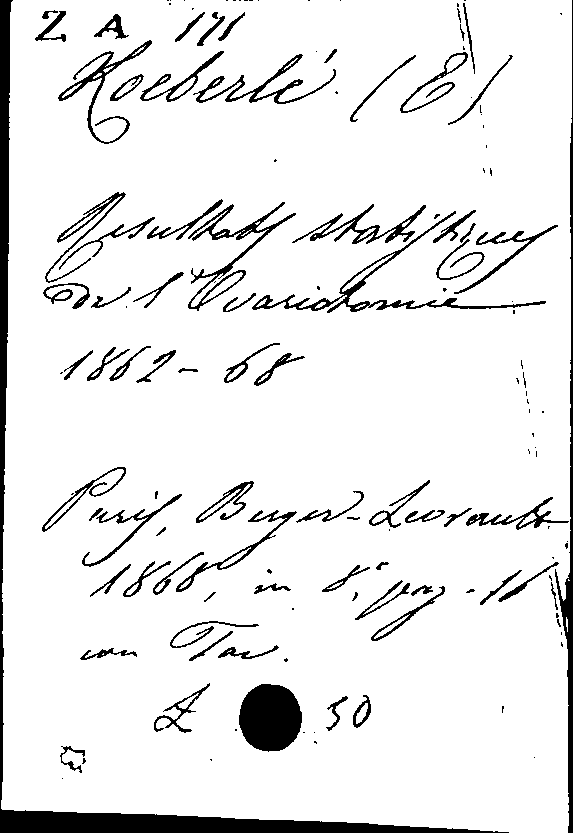 Z A 171
Koeberlé (E)
Resultats statistiques
de l'Ovariotomie
1862-68
Paris, Berger-Levrault
1868, in 8°, pag. 16
con Tav.
L 50